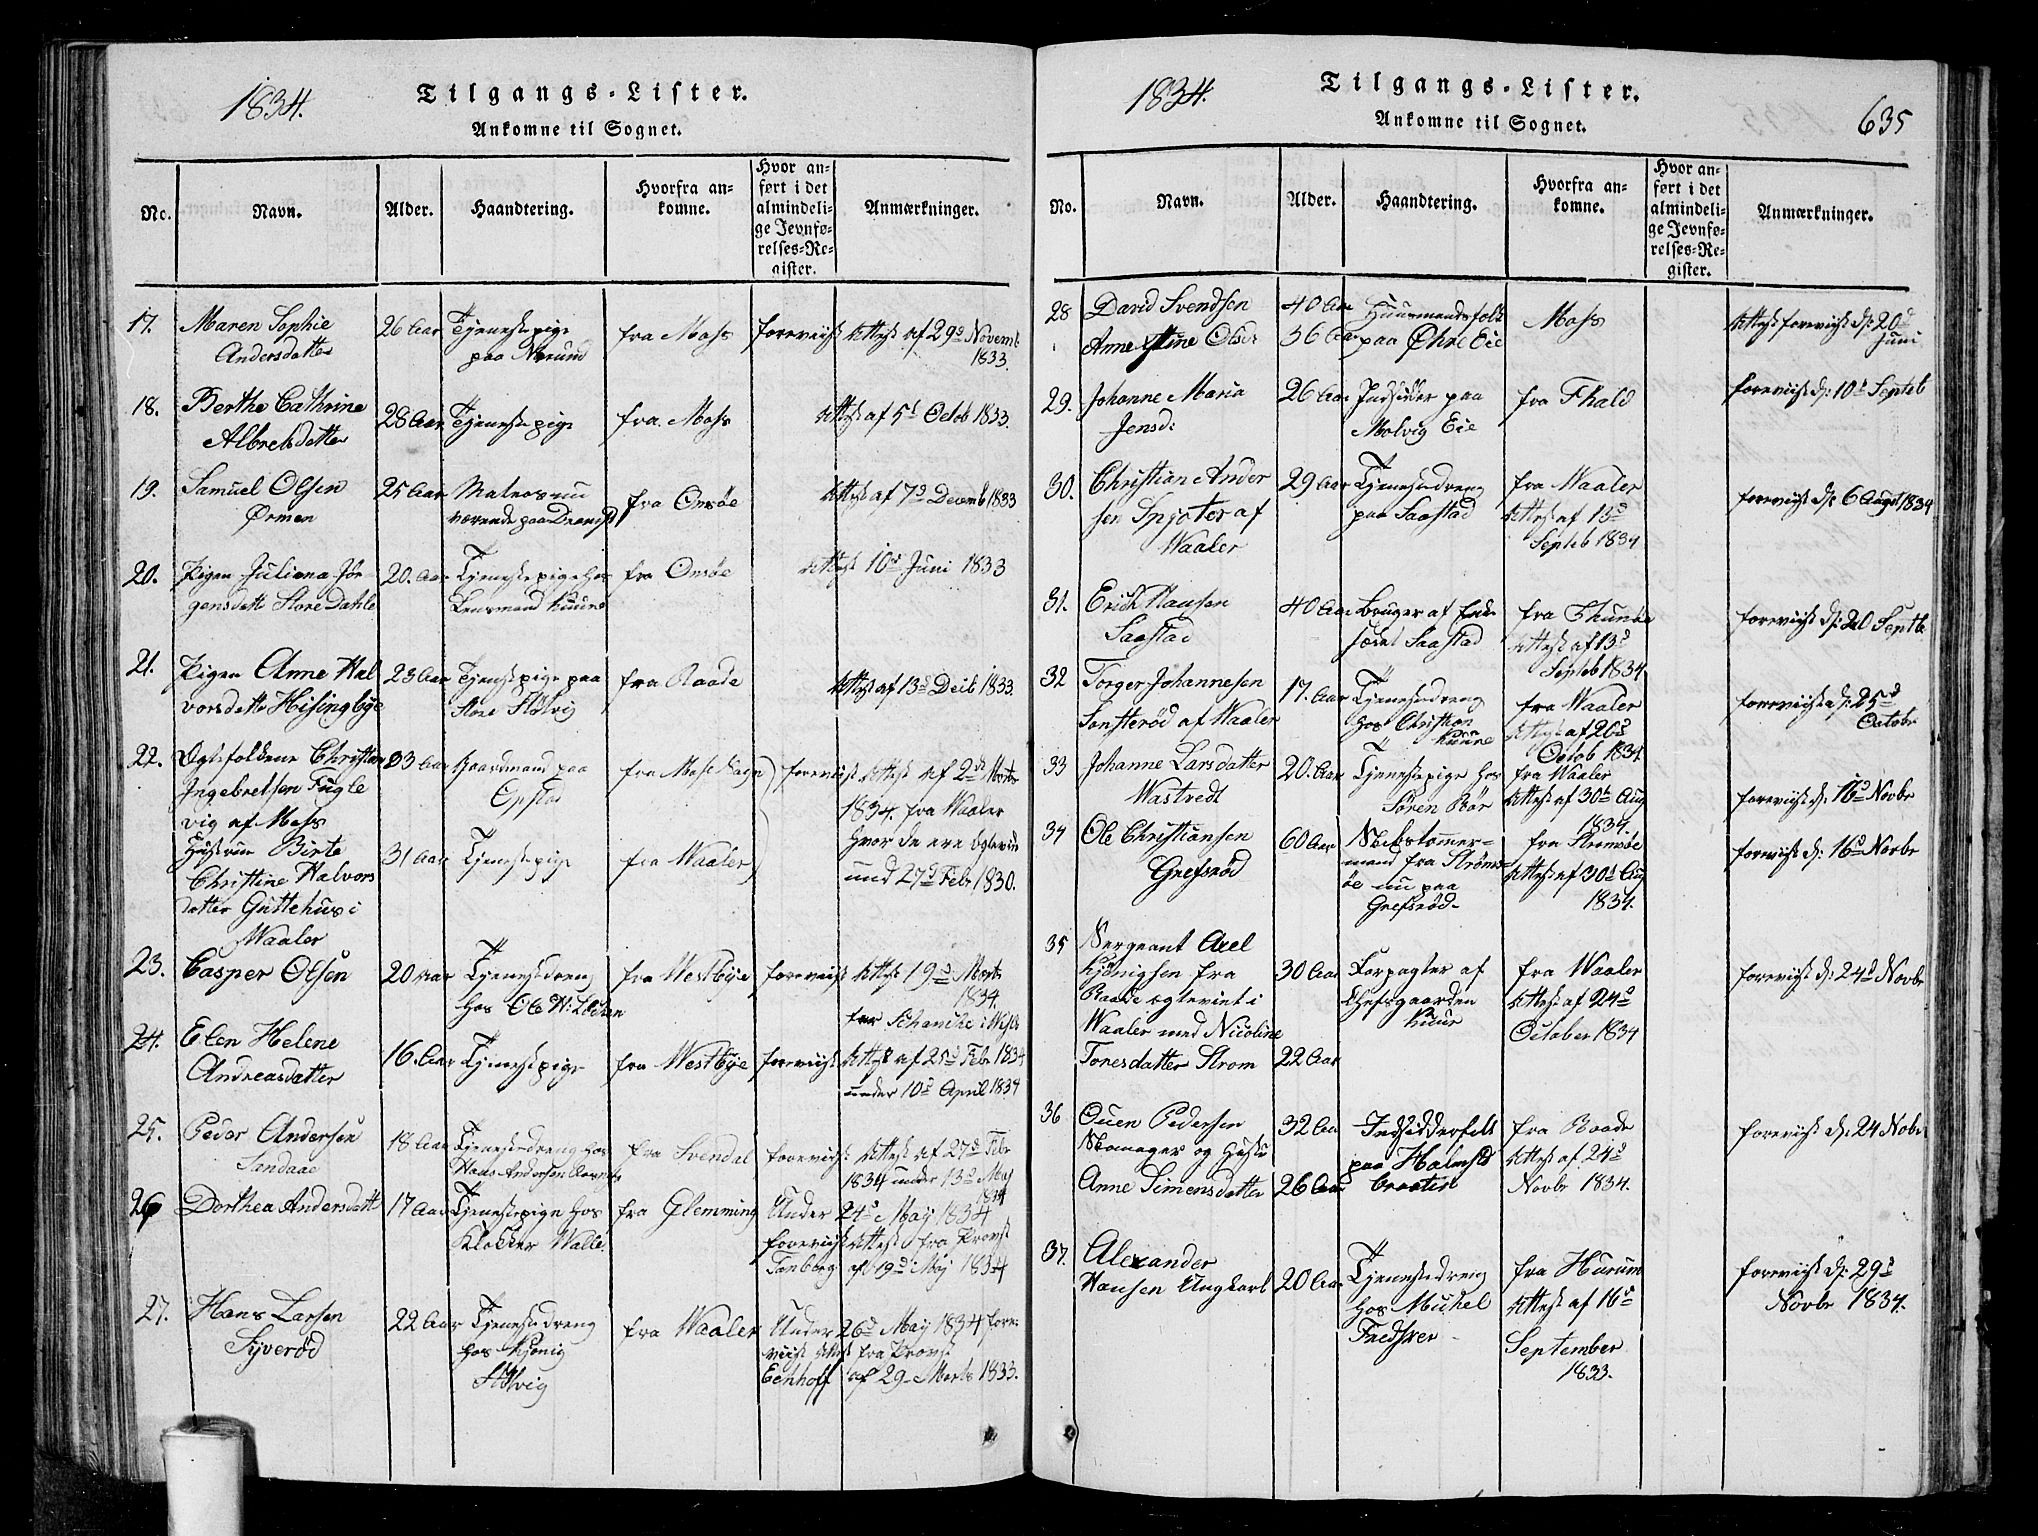 1834.
Tilgangs-Lister.
Ankomne til Sognet.
No.
Navn.
Alder.
Haandtering.
Hvorfra an-
komne.
Hvor an-
ført i det
almindeli-
ge Jevnfø-
relses-Re-
gister.
Anmærkninger.
17. Maren Sophie
Andersdatter
26 Aar
Tjenestepige
paa
fra Moss
foreviist Attest af 29d Novemb
1833.
18. Berthe Cathrine
Albretsdatter
28 Aar
Tjenestepige
fra Moss
Attest af 5t Octob 1833.
19. Samuel Olsen
Ørmen
25 Aar
Matros nu
værende paa
fra Onsøe
Attest af 7d Decemb 1833
20. Pigen Juliana Jør-
gensdatt Store Dahle
20. Aar
Tjenestepige hos
Lensmand Kuure
fra Onsøe
Attest 10d Juni 1833
21. Pigen Anne Hal
vorsdatte Hisingbye
23 Aar
Tjenestepige paa
Store Støtvig
fra Raade
Attest af 13d Decb 1833.
22. Egtefolkene Christian
Ingebretsen Fugle
vig af Moss
Hustrue Birte
Christine Halvors
datter Guttehus i
Waaler
33 Aar
Gaardmand paa
Opstad
31 Aar
Tjenestepige
fra Waaler
foreviist Attest af 2de Marts
1834. fra Waaler
hvor de ere egteviet
und 27d Febr 1830.
23. Casper Olsen
20 Aar
Tjenestedreng
hos Ole
fra Westbye
foreviist Attest 19d Marts
1834.
24. Elen Helene
Andreasdatter
16. Aar
Tjenestepige
fra Westbye
foreviist Attest af 25d Febr 1834
under 10d April 1834
25. Peder Andersen
Sandaae
18 Aar
Tjenestedreng hos
Hans Andersen
fra Svendal
foreviist Attest af 27d Febr
1834 under 13d May
1834
26 Dorthea Andersdatt
17 Aar
Tjenestepige hos
Klokker Walle.
fra Glemming
Under 24d May 1834
foreviist Attest fra Provst
Tanberg af 19d May 1834
27. Hans Larsen
Syverød
22 Aar
Tjenestedreng
hos Kjønig
Støtvig
fra Waaler
Under 26d May 1834 fore-
viist Attest fra Provst
Eenhoff af 29 Marts 1833.
1834.
Tilgangs-Lister.
Ankomne til Sognet.
635
No.
Navn.
Alder.
Haandtering.
Hvorfra an-
komne.
Hvor an-
ført i det
almindeli-
ge Jevnfø-
relses-Re-
gister.
Anmærkninger.
28 David Svendsen
Anne Stine Olsd:
40 Aar
36 Aar
Huusmandsfolk
paa Øhre Eie
Moss
Attest foreviist d: 20d
Juni
29. Johanne Maria
Jensd:
26 Aar
Indsidder paa
Molvig Eie
fra Thald
foreviist d: 10d Septeb
30. Christian Ander
sen Spjøter af
Waaler
29 Aar
Tjenestedreng
paa Saastad
fra Waaler
Attest af 13d
Septeb 1834
foreviist d: 6 August 1834
31. Erich Hansen
Saastad
40 Aar
Bruger af
Saastad
fra Thunøe
Attest af 13d
Septeb 1834.
foreviist d: 20 Septb
32 Torger Johannesen
Sonsterød af Waaler
17. Aar
Tjenestedreng
hos Christian
Kuure
fra Waaler
Attest af 26d
Octob 1834.
foreviist d: 25d
Octobr
33 Johanne Larsdatter
Wastvedt
20. Aar
Tjenestepige hos
Søren Bør
fra Waaler
Attest af 30t Aug
1834.
foreviist d: 16d Novbr
34 Ole Christiansen
Grefsrød
60 Aar
Flodstømmer-
mand fra Strøms-
øe nu paa
Grefsrød
fra Strømsøe
Attest af 30t Aug
1834.
foreviist d: 16d Novbr
35 Sergeant Axel
Kjønigsen fra
Raade egteviet i
Waaler med Nicoline
Tonesdatter Strom
30 Aar
22 Aar
Forpagter af
Chefsgaarden
Kuur
fra Waaler
Attest af 24d
October 1834
foreviist d: 24d Novbr
36 Ouen Pedersen
Skomager og Hustr
Anne Simensdatter
32 Aar
26 Aar
Indsidderfolk
paa Halmstd
fra Raade
Attest af 24d
Novbr 1834.
foreviist d: 24 Novbr
37. Alexander
Hansen Ungkarl
20 Aar
Tjenestedreng
hos Mickel
Fredsver
fra Hurum
Attest af 16d
September
1833.
foreviist d: 29d
Novbr 1834.